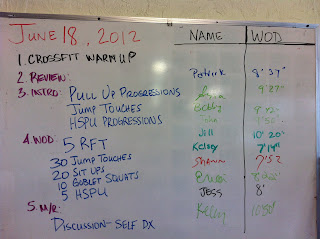 JUNE 18, 2012
NAME WOD
1. CROSSFIT WARM UP
2. REVIEW:
3. INTRO: PULL UP PROGRESSIONS
JUMP TOUCHES
HSPU PROGRESSIONS
4. WOD:
5 RFT
30 JUMP TOUCHES
20 SIT UPS
10 GOBLET SQUATS
5 HSPU
5. M/R:
DISCUSSION - SELF DX
Patrick 9'37"
9'27"
Bobby
John
Jill 10'20"
Kelsey 7'19"
SHAWN 7'52
JESS 8'
Kelsey